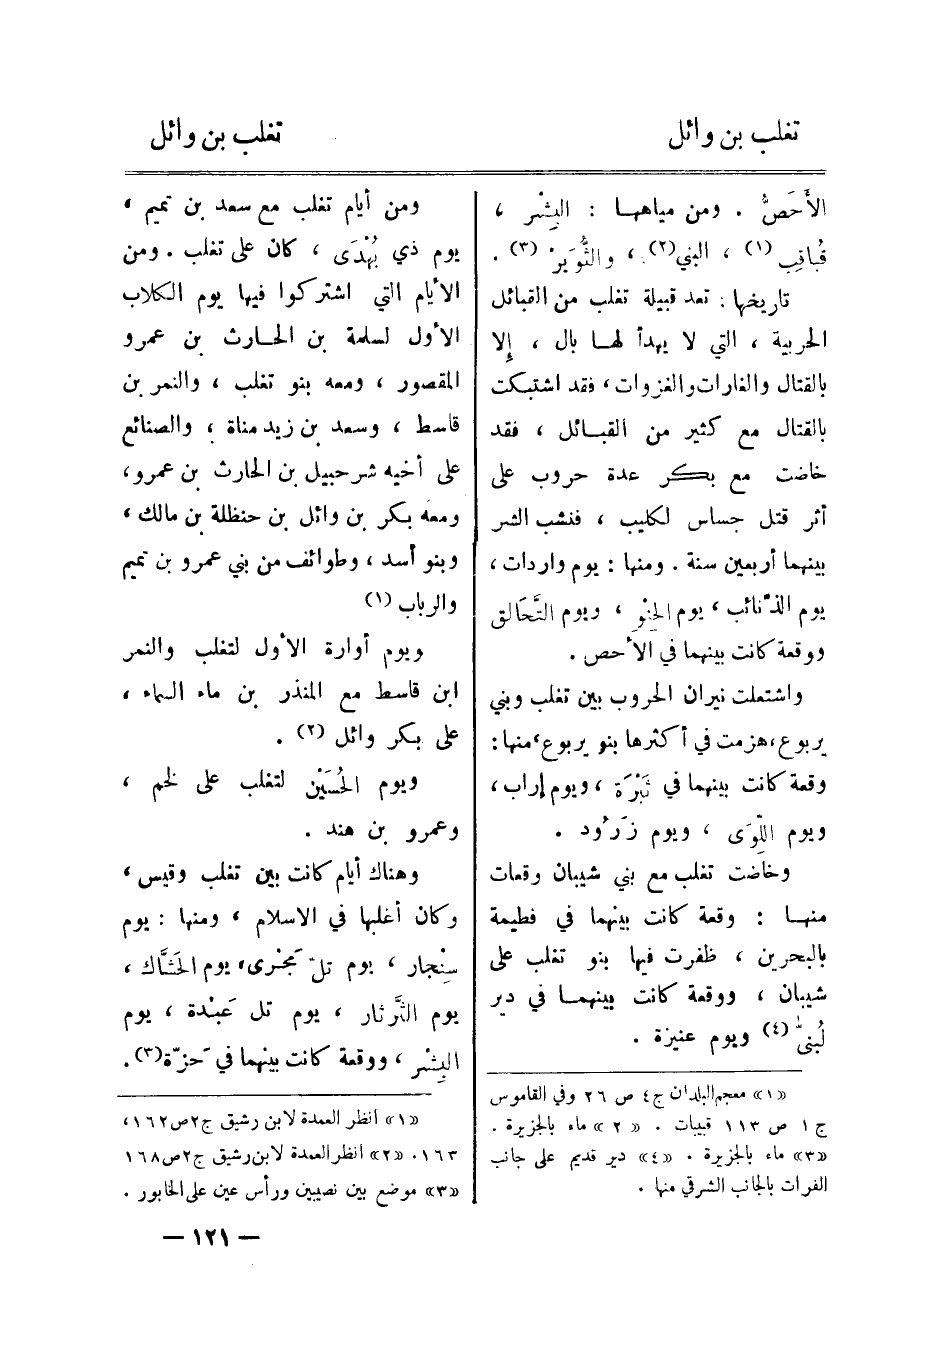 تغلب بن وائل
تغلب بن وائل
الأَحَصُّ . ومن مياهها : البِشْر ،
قُباقِب (١) ، البني(٢) ، والثُّوَيْر (٣) .
تاريخها : تعد قبيلة تغلب من القبائل
الحربية ، التي لا يهدأ لها بال ، إلا
بالقتال والغارات والغزوات ، فقد اشتبكت
بالقتال مع كثير من القبائل ، فقد
خاضت مع بكر عدة حروب على
أثر قتل جساس لكليب ، فنشب الشر
بينهما أربعين سنة . ومنها : يوم واردات ،
يوم الذنائب ، يوم الحِنْوِ ، ويوم التَّحَالق
ووقعة كانت بينهما في الأحص .
واشتعلت نيران الحروب بين تغلب وبني
يربوع ، هزمت في أكثرها بنو يربوع ، منها :
وقعة كانت بينهما في ثَبْرَة ، ويوم إراب ،
ويوم اللِّوَى ، ويوم زَرُود .
وخاضت تغلب مع بني شيبان وقعات
منها : وقعة كانت بينهما في فطيمة
بالبحرين ، ظفرت فيها بنو تغلب على
شيبان ، ووقعة كانت بينهما في دير
لُبنى (٤) ويوم عنيزة .
«١» معجم البلدان ج٤ ص ٢٦ وفي القاموس
ج ١ ص ١١٣ قبيبات . «٢» ماء بالجزيرة .
«٣» ماء بالجزيرة . «٤» دير قديم على جانب
الفرات بالجانب الشرقي منها .
ومن أيام تغلب مع سعد بن تميم ،
يوم ذي بُهْدَى ، كان على تغلب . ومن
الأيام التي اشتركوا فيها يوم الكلاب
الأول لسلمة بن الحارث بن عمرو
المقصور ، ومعه بنو تغلب ، والنمر بن
قاسط ، وسعد بن زيد مناة ، والصنائع
على أخيه شرحبيل بن الحارث بن عمرو ،
ومعه بكر بن وائل بن حنظلة بن مالك ،
وبنو أسد ، وطوائف من بني عمرو بن تميم
والرباب (١)
ويوم أوارة الأول لتغلب والنمر
ابن قاسط مع المنذر بن ماء السماء ،
على بكر وائل (٢) .
ويوم الحُسَيْن لتغلب على لخم ،
وعمرو بن هند .
وهناك أيام كانت بين تغلب وقيس ،
وكان أغلبها في الاسلام ، ومنها : يوم
سِنْجار ، يوم تلّ مَجْرى ، يوم الحَشَّاك ،
يوم الثَّرْثار ، يوم تل عَبْدة ، يوم
البِشْر ، ووقعة كانت بينهما في حَزّة (٣) .
«١» انظر العمدة لابن رشيق ج٢ص١٦٢ ،
١٦٣ . «٢» انظر العمدة لابن رشيق ج٢ص١٦٨
«٣» موضع بين نصيبين ورأس عين على الخابور .
— ١٢١ —